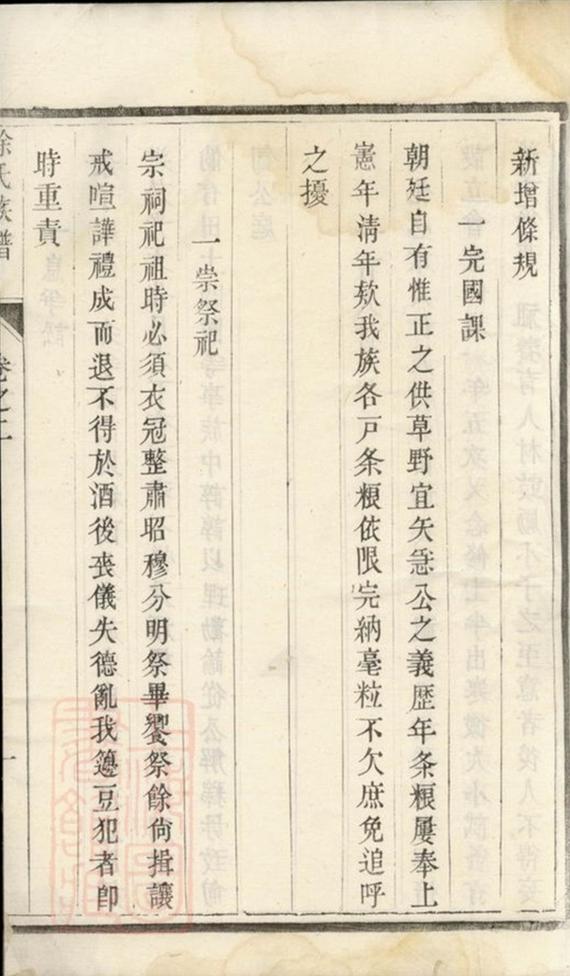 新增條規
一完國課
朝廷自有惟正之供草野宜矢急公之義歷年条粮屢奉上
憲年清年欵我族各戸条粮依限完納毫粒不欠庶免追呼
之擾
一崇祭祀
宗祠祀祖時必須衣冠整肅昭穆分明祭畢饗祭餘尙揖讓
戒喧譁禮成而退不得於酒後丧儀失德亂我籩豆犯者卽
時重責
徐氏族譜
卷之二
一